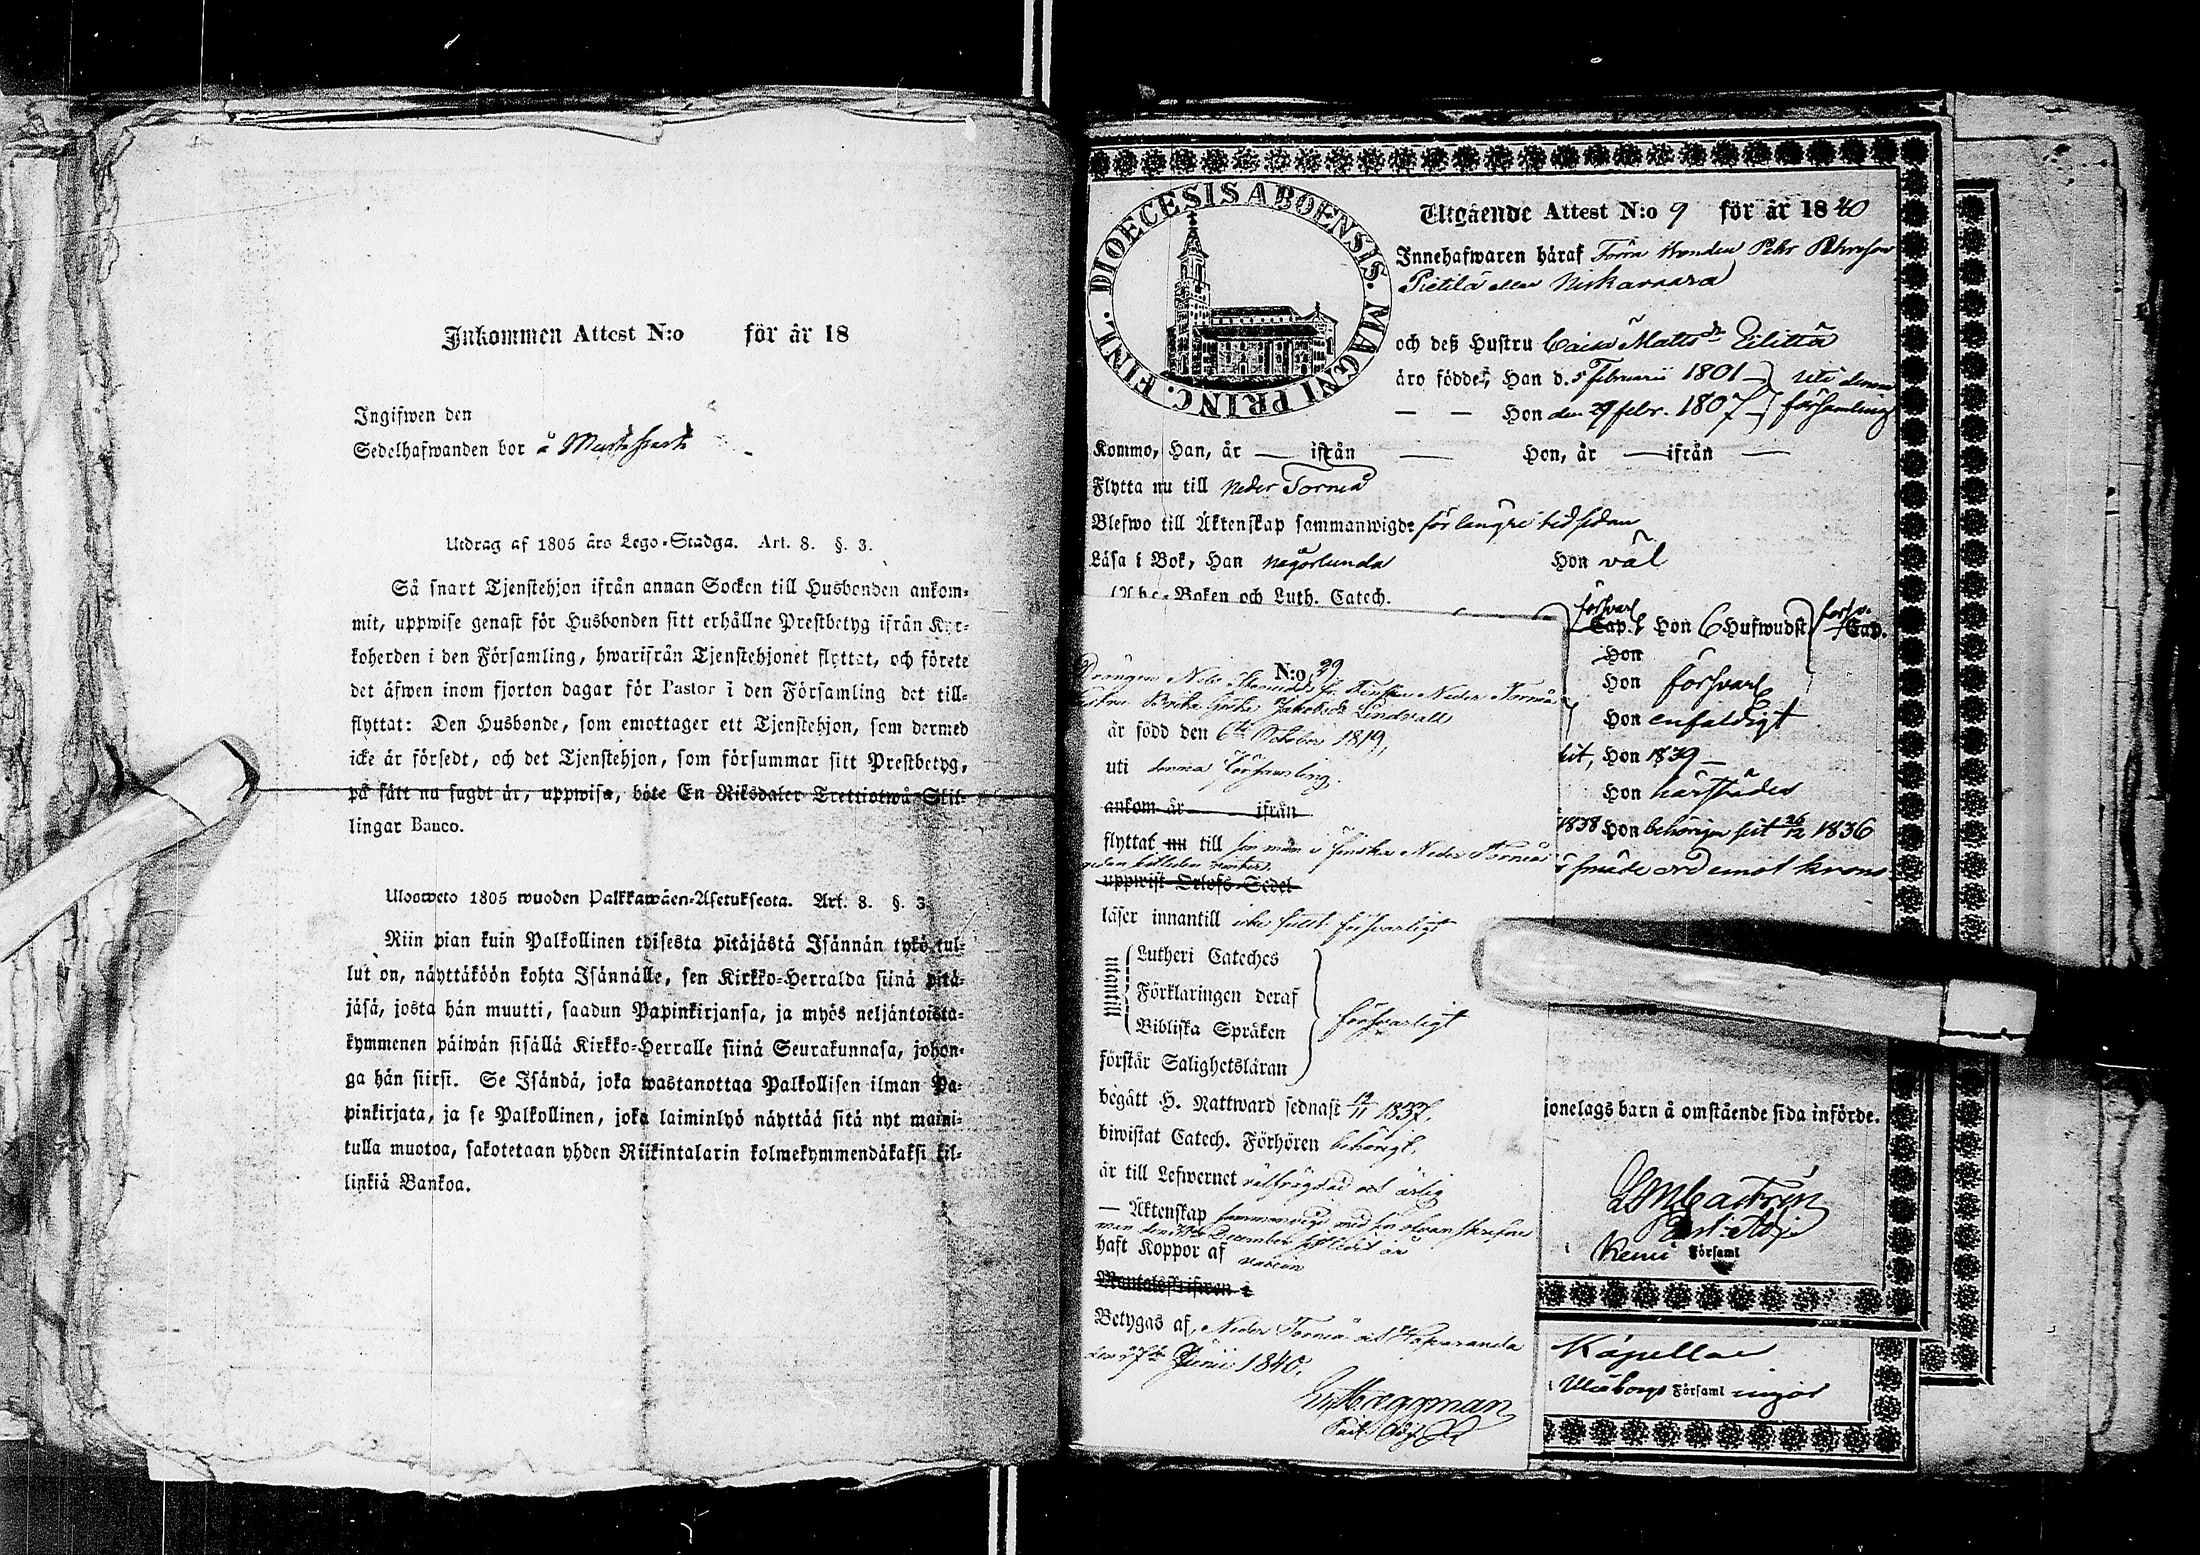 Inkommen Attest N:o för år 18
Ingifwen den
Sedelhafwanden bor å
Utdrag af 1805 års Lego-Stadga. Art. 8. §. 3.
Så snart Tjenstehjon ifrån annan Socken till Husbonden ankom-
mit, uppwise genast för Husbonden sitt erhållne Prestbetyg ifrån Kyr-
koherden i den Församling, hwarifrån Tjenstehjonet flyttat, och förete
det äfwen inom fjorton dagar för Pastor i den Församling det till-
flyttat: Den Husbonde, som emottager ett Tjenstehjon, som dermed
icke är försedt, och det Tjenstehjon, som försummar sitt Prestbetyg,
på sätt nu sagdt är, uppwisa, böte En Riksdaler Trettiotwå Skil-
lingar Banco.
Ulosweto 1805 wuoden Palkkawäen-Asetuksesta. Art. 8. §. 3.
Niin pian kuin Palkollinen toisesta pitäjästä Isännän tykö tul-
lut on, näyttäköön kohta Isännälle, sen Kirkko-Herralda siinä pitä-
jäsä, josta hän muutti, saadun Papinkirjansa, ja myös neljäntoista-
kymmenen päiwän sisällä Kirkko-Herralle siinä Seurakunnasa, johon-
ga hän siirsi. Se Isändä, joka wastanottaa Palkollisen ilman Pa-
pinkirjata, ja se Palkollinen, joka laiminlyö näyttää sitä nyt maini-
tulla muotoa, sakotetaan yhden Riikintalarin kolmekymmendäkaksi kil-
linkiä Bankoa.
DIOECESIS ABOENSIS. MAGNI PRINC. FINL.
Utgående Attest N:o 9 för år 1840
Innehafwaren häraf Förra Bonden Pehr Pehrsson
Pietilä eller Niskawaara
och deß Hustru Caisa Matts dr Eilittä
äro födde, Han d. 5 Februarii 1801 uti denna
— — Hon den 29 febr. 1807 församling
Kommo, Han, år — ifrån — Hon, år — ifrån —
Flytta nu till Neder Torneå
Blefwo till Äktenskap sammanwigde för längre tid sedan
Läsa i Bok, Han någorlunda Hon väl
Abc-Boken och Luth. Catech.
försvarl
Cap. Hon 6 Hufwudst. Cap.
Hon
Hon försvarl
Hon enfaldigt
sit, Hon 1839 —
Hon härstädes
1838 Hon behörigen sit 26/12 1836
jonelags barn å omstående sida införde.
Castrén
Kemi Församl
Kapellan
i Uleåborgs Församl
N:o 29
Drängen Nils Finska Neder Torneå
hustru Brita Greta Jakobsdr Lindvall
är född den 6te October 1819,
uti denna Församling.
ankom år ifrån
flyttat nu till sin man i Finska Neder Torneå
uppwist Orlofs-Sedel
läser innantill icke fullt försvarligt
utantill
Lutheri Cateches
Förklaringen deraf
Bibliska Språken
försvarligt
förstår Salighetsläran
begått H. Nattward sednast 12/11 1837,
biwistat Catech. Förhören behörigt,
är till Lefwernet välfrägdad och ärlig
— Äktenskap sammanvigd med sin ofvanskrefne
man den December
haft Koppor af vaccin
Mantalsskrifwen i
Betygas af, Neder Torneå och Haparanda
den 27de Junii 1840.
Haggman